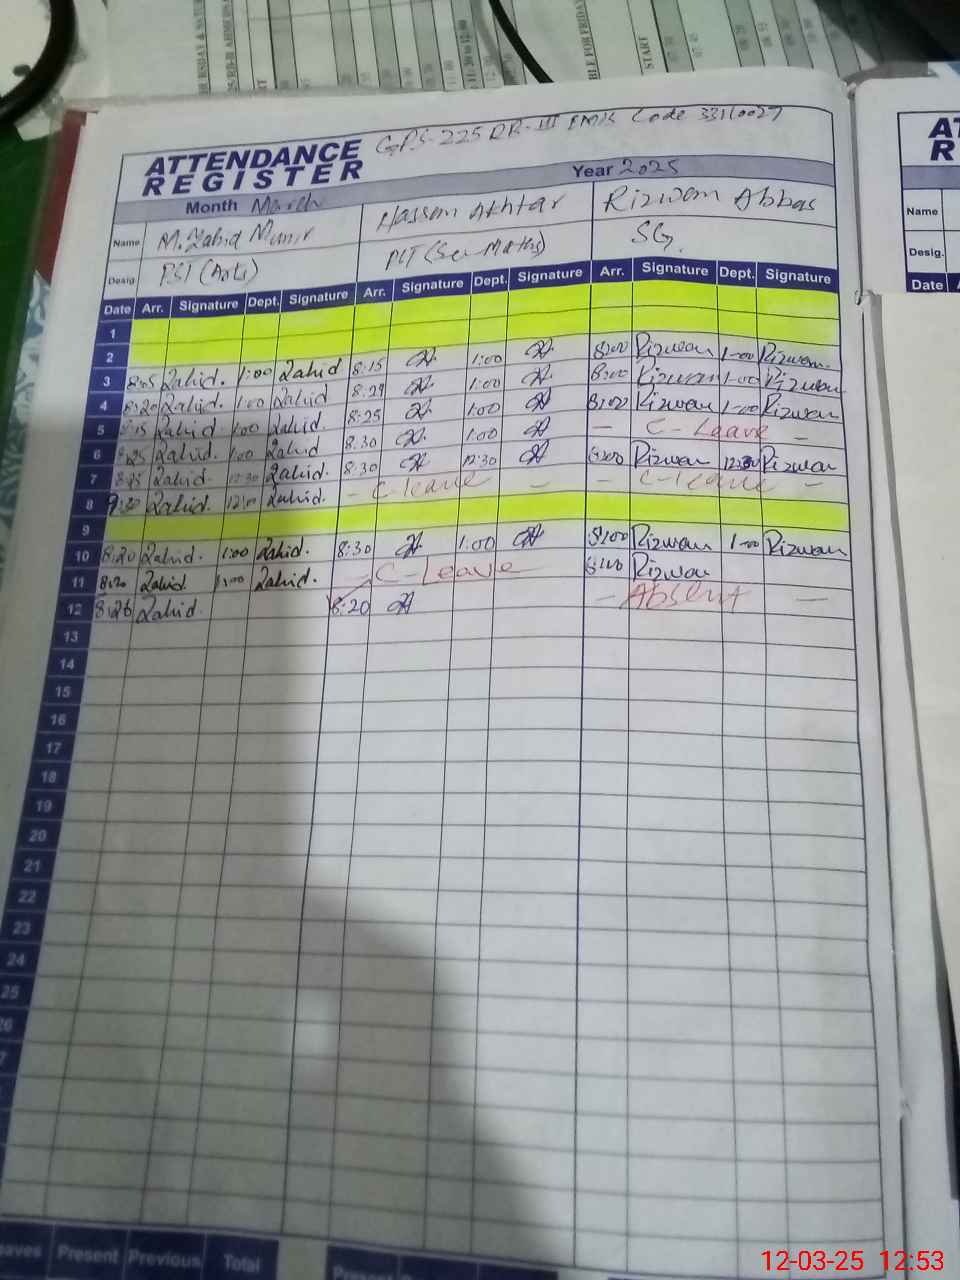 RSDAY & SATUR
BLE FOR FRIDAY
START
GPS-225 RR-III EMIS Code 33110027
ATTENDANCE
REGISTER
Year 2025
Month March
Name M. Zahid Munir Hassan Akhtar Rizwan Abbas
Desig. PST (Arts) SG.
Date Arr. Signature Dept. Signature Arr. Signature Dept. Signature Arr. Signature Dept. Signature
1
2
3 8:25 Zahid. 1:00 Zahid 8:15 1:00 8:00 Rizwan 1-00 Rizwan
4 8:20 Zahid. 1:00 Zahid 8:29 1:00 8:00 Rizwan 1-00 Rizwan
5 Zahid 1:00 Zahid. 8:25 1:00 8:00 Rizwan 1-00 Rizwan
6 8:25 Zahid 1:00 Zahid 8:30 1:00 — C-Leave —
7 Zahid. 12:30 Zahid. 8:30 12:30 8:00 Rizwan 12:30 Rizwan
8 Zahid. Zahid. — C-leave — — C-leave —
9
10 8:20 Zahid. 1:00 Zahid. 8:30 1:00 8:00 Rizwan 1-00 Rizwan
11 8:20 Zahid 1:00 Zahid. — C-Leave 8:00 Rizwan
12 8:26 Zahid 8:20 — Absent —
13
14
15
16
17
18
19
20
21
22
23
24
25
26
7
eaves Present Previous Total Present
AT
R
Name
Desig.
Date A
12-03-25 12:53